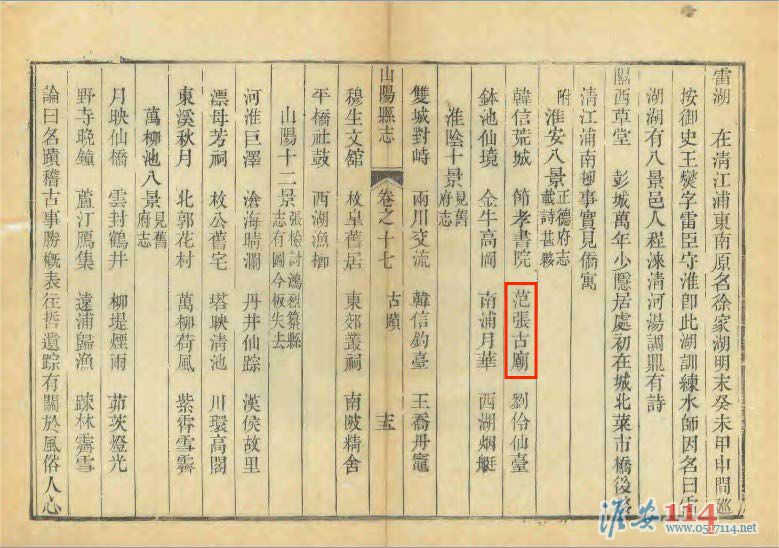 雷湖　在清江浦東南原名徐家湖明末癸未甲申間巡
按御史王燮字雷臣守淮卽此湖訓練水師因名曰雷
湖湖有八景邑人程淶清河湯調鼎有詩
隰西草堂　彭城萬年少隱居處初在城北菜市橋後移
清江浦南頓事實見僑寓
附　淮安八景　正德府志載詩甚夥
韓信荒城　節孝書院　范張古廟　劉伶仙臺
鉢池仙境　金牛高岡　南浦月華　西湖烟艇
淮陰十景　見舊府志
雙城對峙　兩川交流　韓信釣臺　王喬丹竈
山陽縣志　卷之十七　古蹟　十五
穆生文館　枚皋舊居　東郊叢祠　南陂精舍
平橋社鼓　西湖漁榔
山陽十二景　張檢討鴻烈纂縣志有圖今板失去
河淮巨澤　滄海晴瀾　丹井仙踪　漢侯故里
漂母芳祠　枚公舊宅　塔映清池　川環高閣
東溪秋月　北郭花村　萬柳荷風　紫霄雪霽
萬柳池八景　見舊府志
月映仙橋　雲封鶴井　柳堤煙雨　茆茨燈光
野寺晚鐘　蘆汀鴈集　遠浦歸漁　疎林霽雪
論曰名蹟稽古事勝槪表往哲遺踪有關於風俗人心
淮安114
www.0517114.net